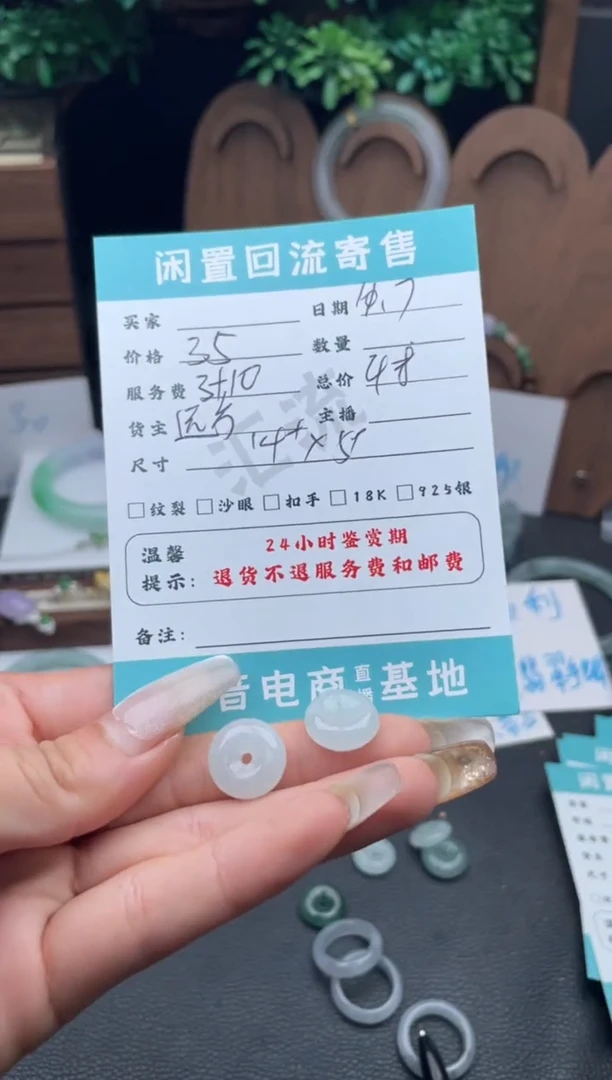 闲置回流寄售
买家 日期 4.7
价格 35 数量
服务费 3+10 总价 48
货主 主播
尺寸 14+×5+
汇流
□纹裂 □沙眼 □扣手 □18K □925银
温馨提示: 24小时鉴赏期
退货不退服务费和邮费
备注:
音电商直播基地